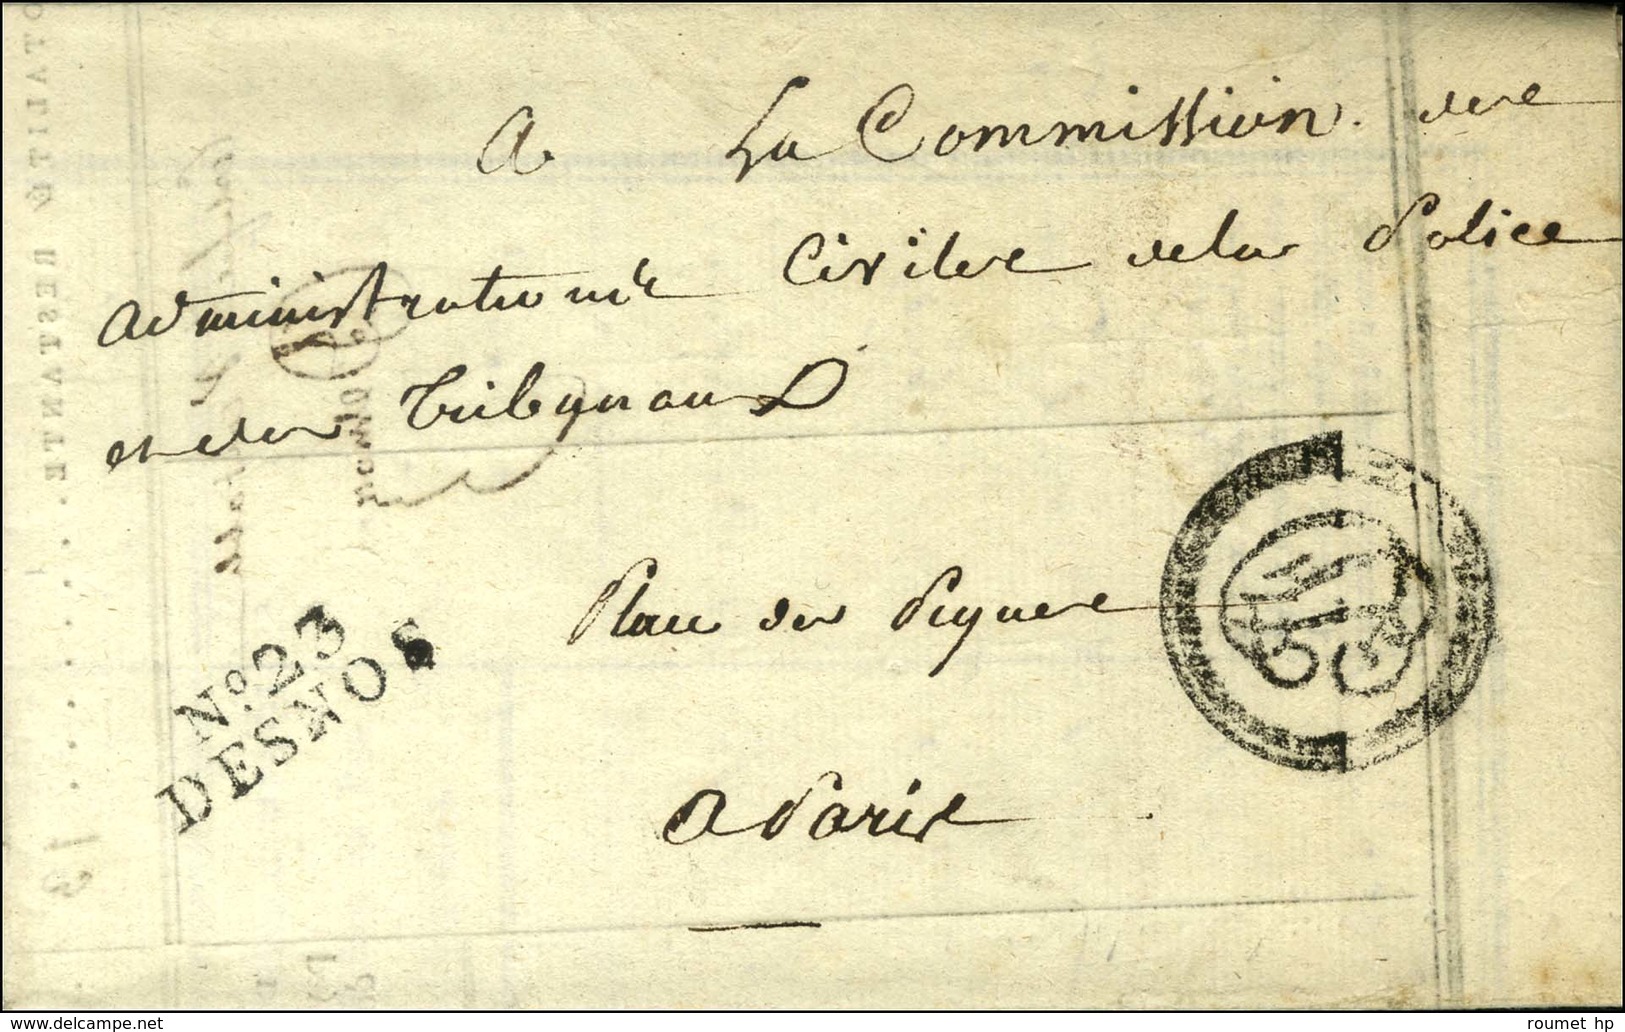 A La Commission des
administrations Civiles de la Police
et des Tribunaux
Place des Piques
A Paris
No. 23
DESNOS
TALITÉ RESTANTE
delcampe.net
roumet hp